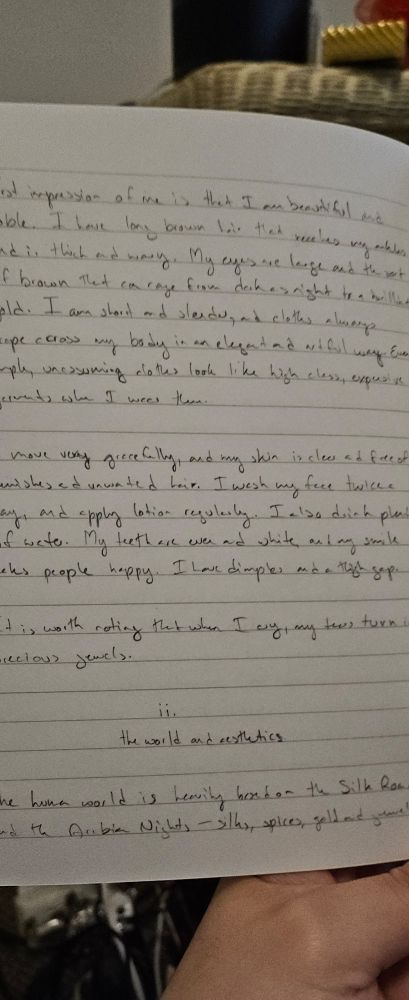 impression of me is that I am beautiful and
I have long brown hair that reaches my ankles
is thick and wavy. My eyes are large and the sort
of brown that can range from dark as night to a brilliant
I am short and slender, and clothes always
across my body in an elegant and artful way. Even
unassuming clothes look like high class, expensive
when I wear them.
move very gracefully, and my skin is clear and free of
and unwanted hair. I wash my face twice a
and apply lotion regularly. I also drink plenty
of water. My teeth are even and white, and my smile
people happy. I have dimples and a thigh gap.
It is worth noting that when I cry, my tears turn
jewels.
ii.
the world and aesthetics
human world is heavily based on the Silk Road
the Arabian Nights – silks, spices, gold and jewels